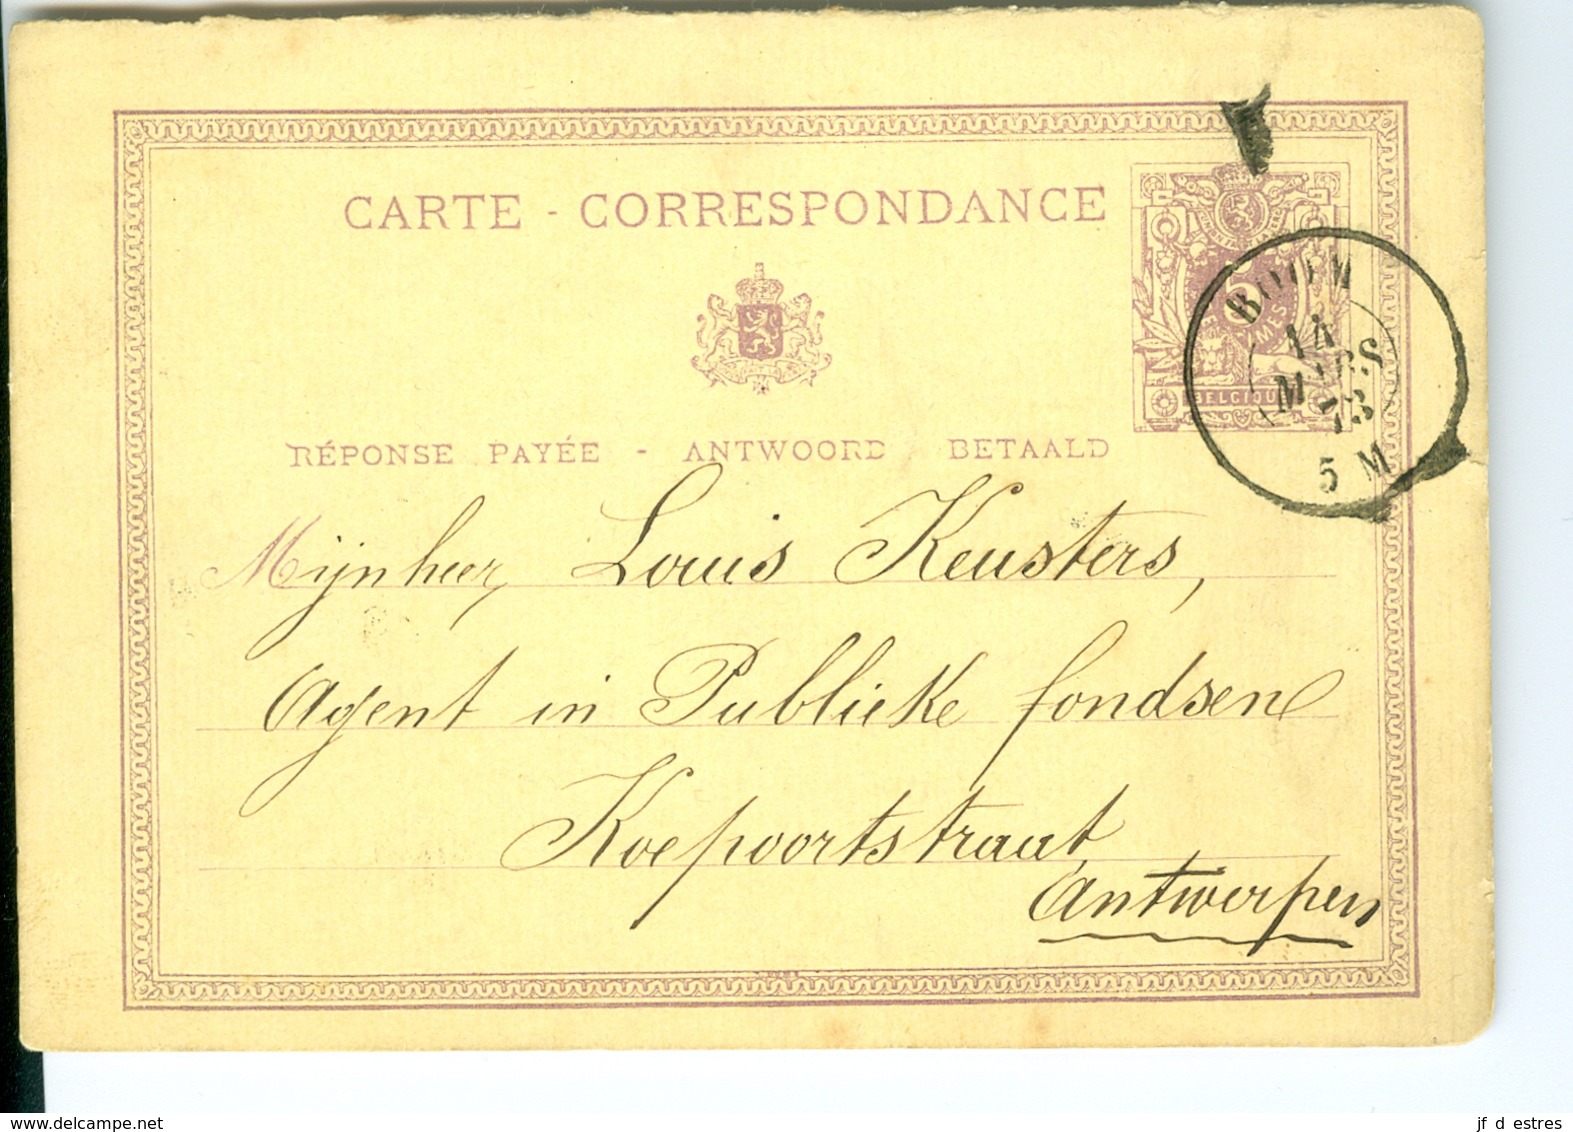 CARTE - CORRESPONDANCE
BOOM
14
MARS
73
5 M
5
BELGIQUE
RÉPONSE PAYÉE - ANTWOORD BETAALD
Mijnheer, Louis Keusters,
Agent in Publieke fondsen
Koepoortstraat
Antwerpen
delcampe.net
jf d estres